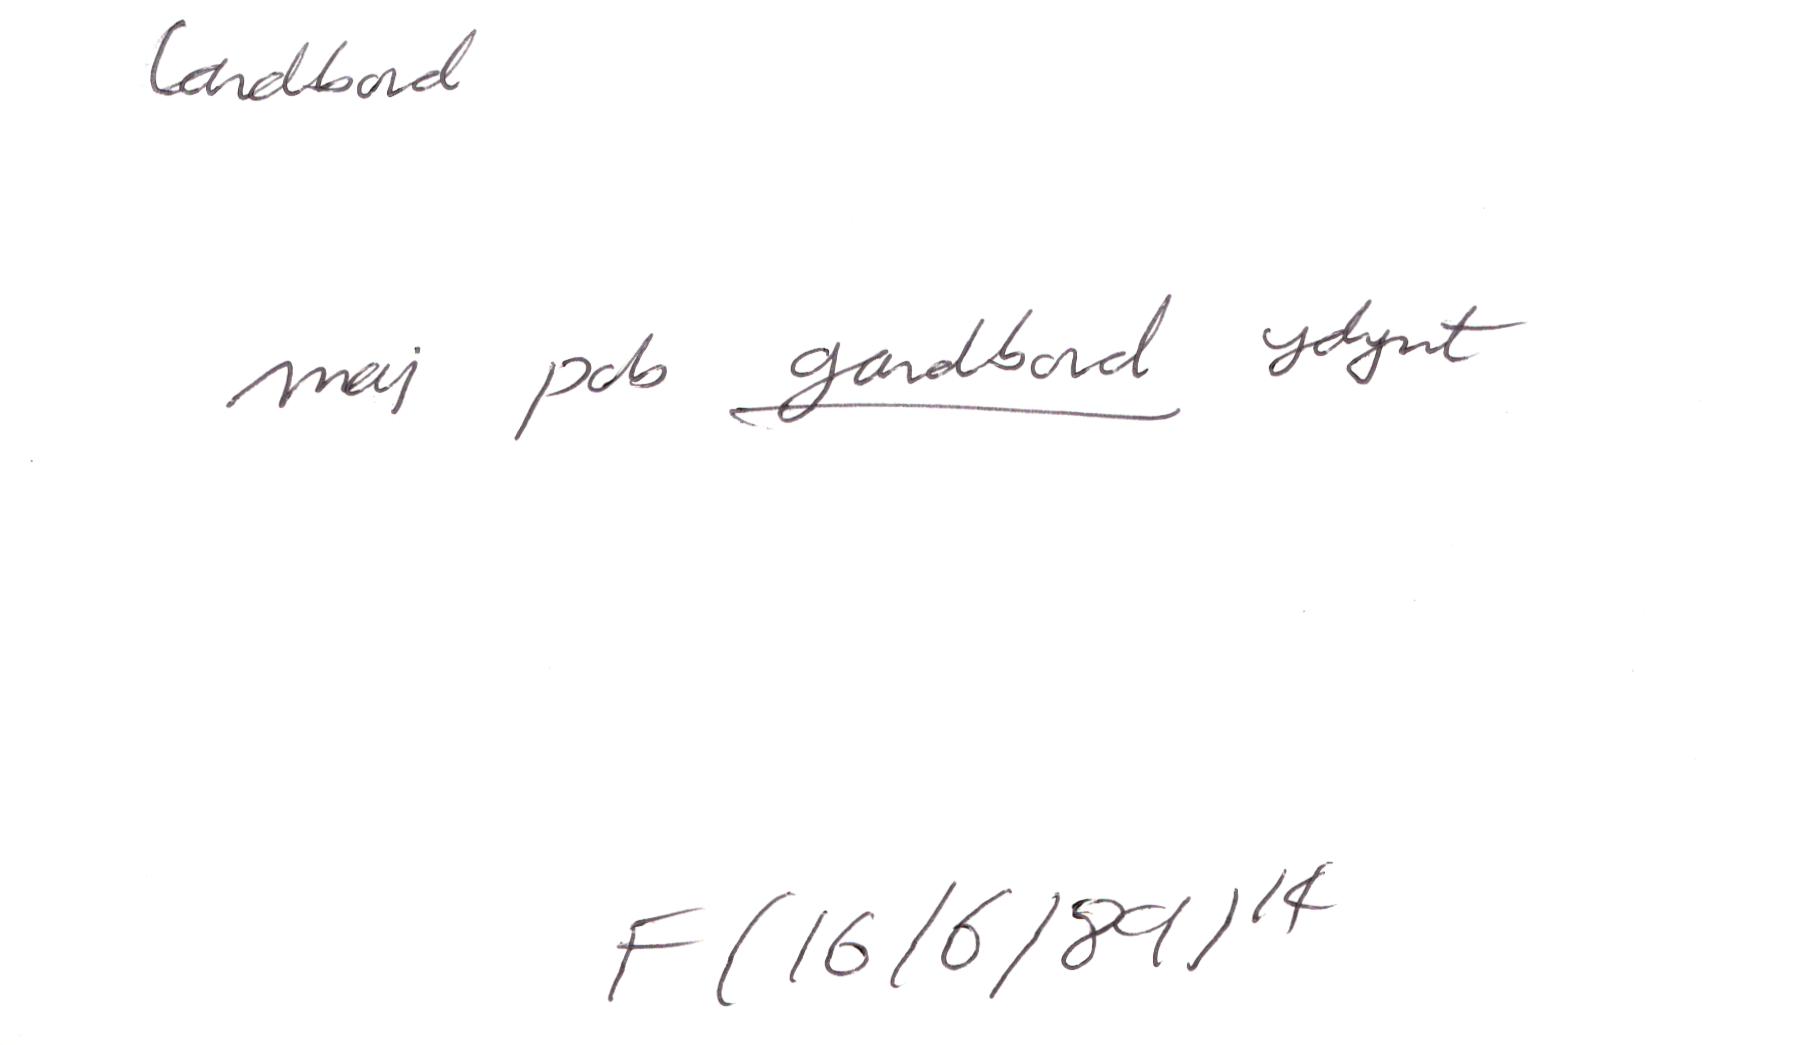 Cardbord
mai pob gardbord ydynt
F(16/6/89)14